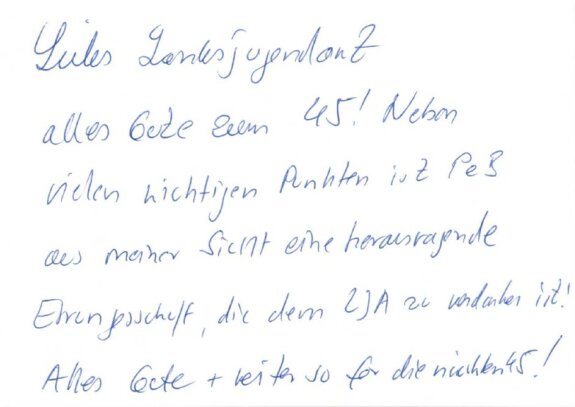 Liebes Landesjugendamt
alles Gute zum 45! Neben
vielen wichtigen Punkten ist PeB
aus meiner Sicht eine herausragende
Errungenschaft, die dem LJA zu verdanken ist!
Alles Gute + weiter so für die nächsten 45!